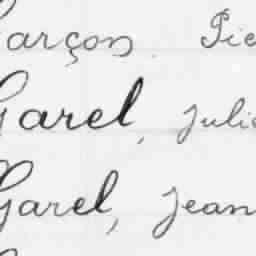 Garçon Pie
Garel, Julie
Garel, Jean